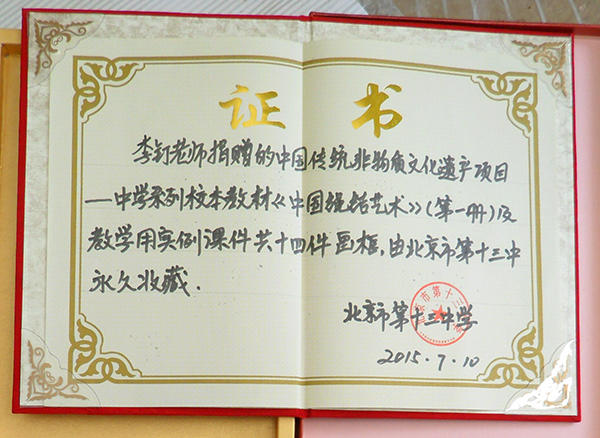 证书
李钉老师捐赠的中国传统非物质文化遗产项目
——中学系列校本教材《中国绳结艺术》(第一册)及
教学用实例课件共十四件画框,由北京市第十三中
永久收藏.
北京市第十三中学
2015.7.10